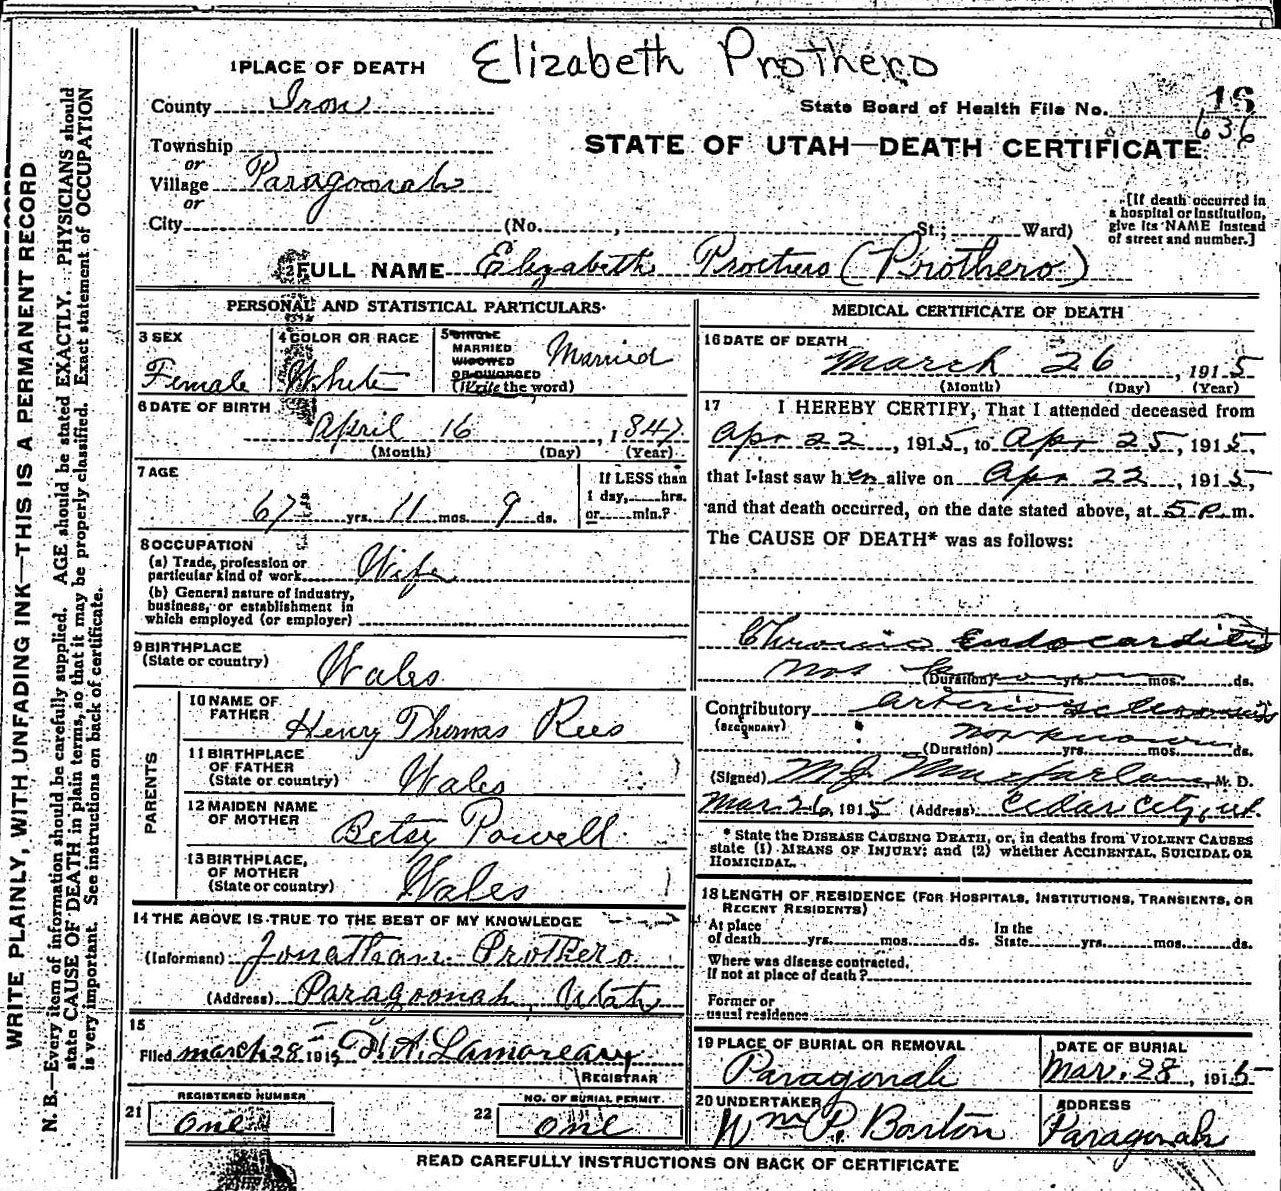 Elizabeth Prothero
1 PLACE OF DEATH
County Iron
State Board of Health File No. 16
636
Township
or
Village Paragoonah
or
City (No. , St.; Ward)
STATE OF UTAH—DEATH CERTIFICATE
[If death occurred in
a hospital or institution,
give its NAME instead
of street and number.]
2 FULL NAME Elizabeth Prothero (Prothero)
PERSONAL AND STATISTICAL PARTICULARS
3 SEX
Female
4 COLOR OR RACE
White
5 SINGLE
MARRIED
WIDOWED
OR DIVORCED
(Write the word)
Married
6 DATE OF BIRTH
April 16, 1847
(Month) (Day) (Year)
7 AGE
67 yrs. 11 mos. 9 ds.
If LESS than
1 day, hrs.
or min.?
8 OCCUPATION
(a) Trade, profession or
particular kind of work Wife
(b) General nature of industry,
business, or establishment in
which employed (or employer)
9 BIRTHPLACE
(State or country) Wales
PARENTS
10 NAME OF
FATHER Henry Thomas Rees
11 BIRTHPLACE
OF FATHER
(State or country) Wales
12 MAIDEN NAME
OF MOTHER Betsy Powell
13 BIRTHPLACE
OF MOTHER
(State or country) Wales
14 THE ABOVE IS TRUE TO THE BEST OF MY KNOWLEDGE
(Informant) Jonathan Prothero
(Address) Paragoonah, Utah
15
Filed March 28 1915 Lamoreaux
REGISTRAR
REGISTERED NUMBER
21 One
NO. OF BURIAL PERMIT
22 one
MEDICAL CERTIFICATE OF DEATH
16 DATE OF DEATH
March 26, 1915
(Month) (Day) (Year)
17 I HEREBY CERTIFY, That I attended deceased from
Apr 22, 1915, to Apr 25, 1915,
that I last saw her alive on Apr 22, 1915,
and that death occurred, on the date stated above, at 5 P. m.
The CAUSE OF DEATH* was as follows:
Chronic Endocarditis
(Duration) yrs. mos. ds.
Contributory Arteriosclerosis
(SECONDARY)
not known
(Duration) yrs. mos. ds.
(Signed) M.J. Macfarlane, M. D.
Mar 26, 1915 (Address) Cedar City, Ut.
* State the DISEASE CAUSING DEATH, or, in deaths from VIOLENT CAUSES
state (1) MEANS OF INJURY; and (2) whether ACCIDENTAL, SUICIDAL OR
HOMICIDAL.
18 LENGTH OF RESIDENCE (FOR HOSPITALS, INSTITUTIONS, TRANSIENTS, OR
RECENT RESIDENTS)
At place
of death yrs. mos. ds.
In the
State yrs. mos. ds.
Where was disease contracted,
If not at place of death?
Former or
usual residence
19 PLACE OF BURIAL OR REMOVAL
Paragonah
DATE OF BURIAL
Mar. 28, 1915
20 UNDERTAKER
Wm P. Barton
ADDRESS
Paragonah
READ CAREFULLY INSTRUCTIONS ON BACK OF CERTIFICATE
WRITE PLAINLY, WITH UNFADING INK—THIS IS A PERMANENT RECORD
N. B.—Every item of information should be carefully supplied. AGE should be stated EXACTLY. PHYSICIANS should
state CAUSE OF DEATH in plain terms, so that it may be properly classified. Exact statement of OCCUPATION
is very important. See instructions on back of certificate.